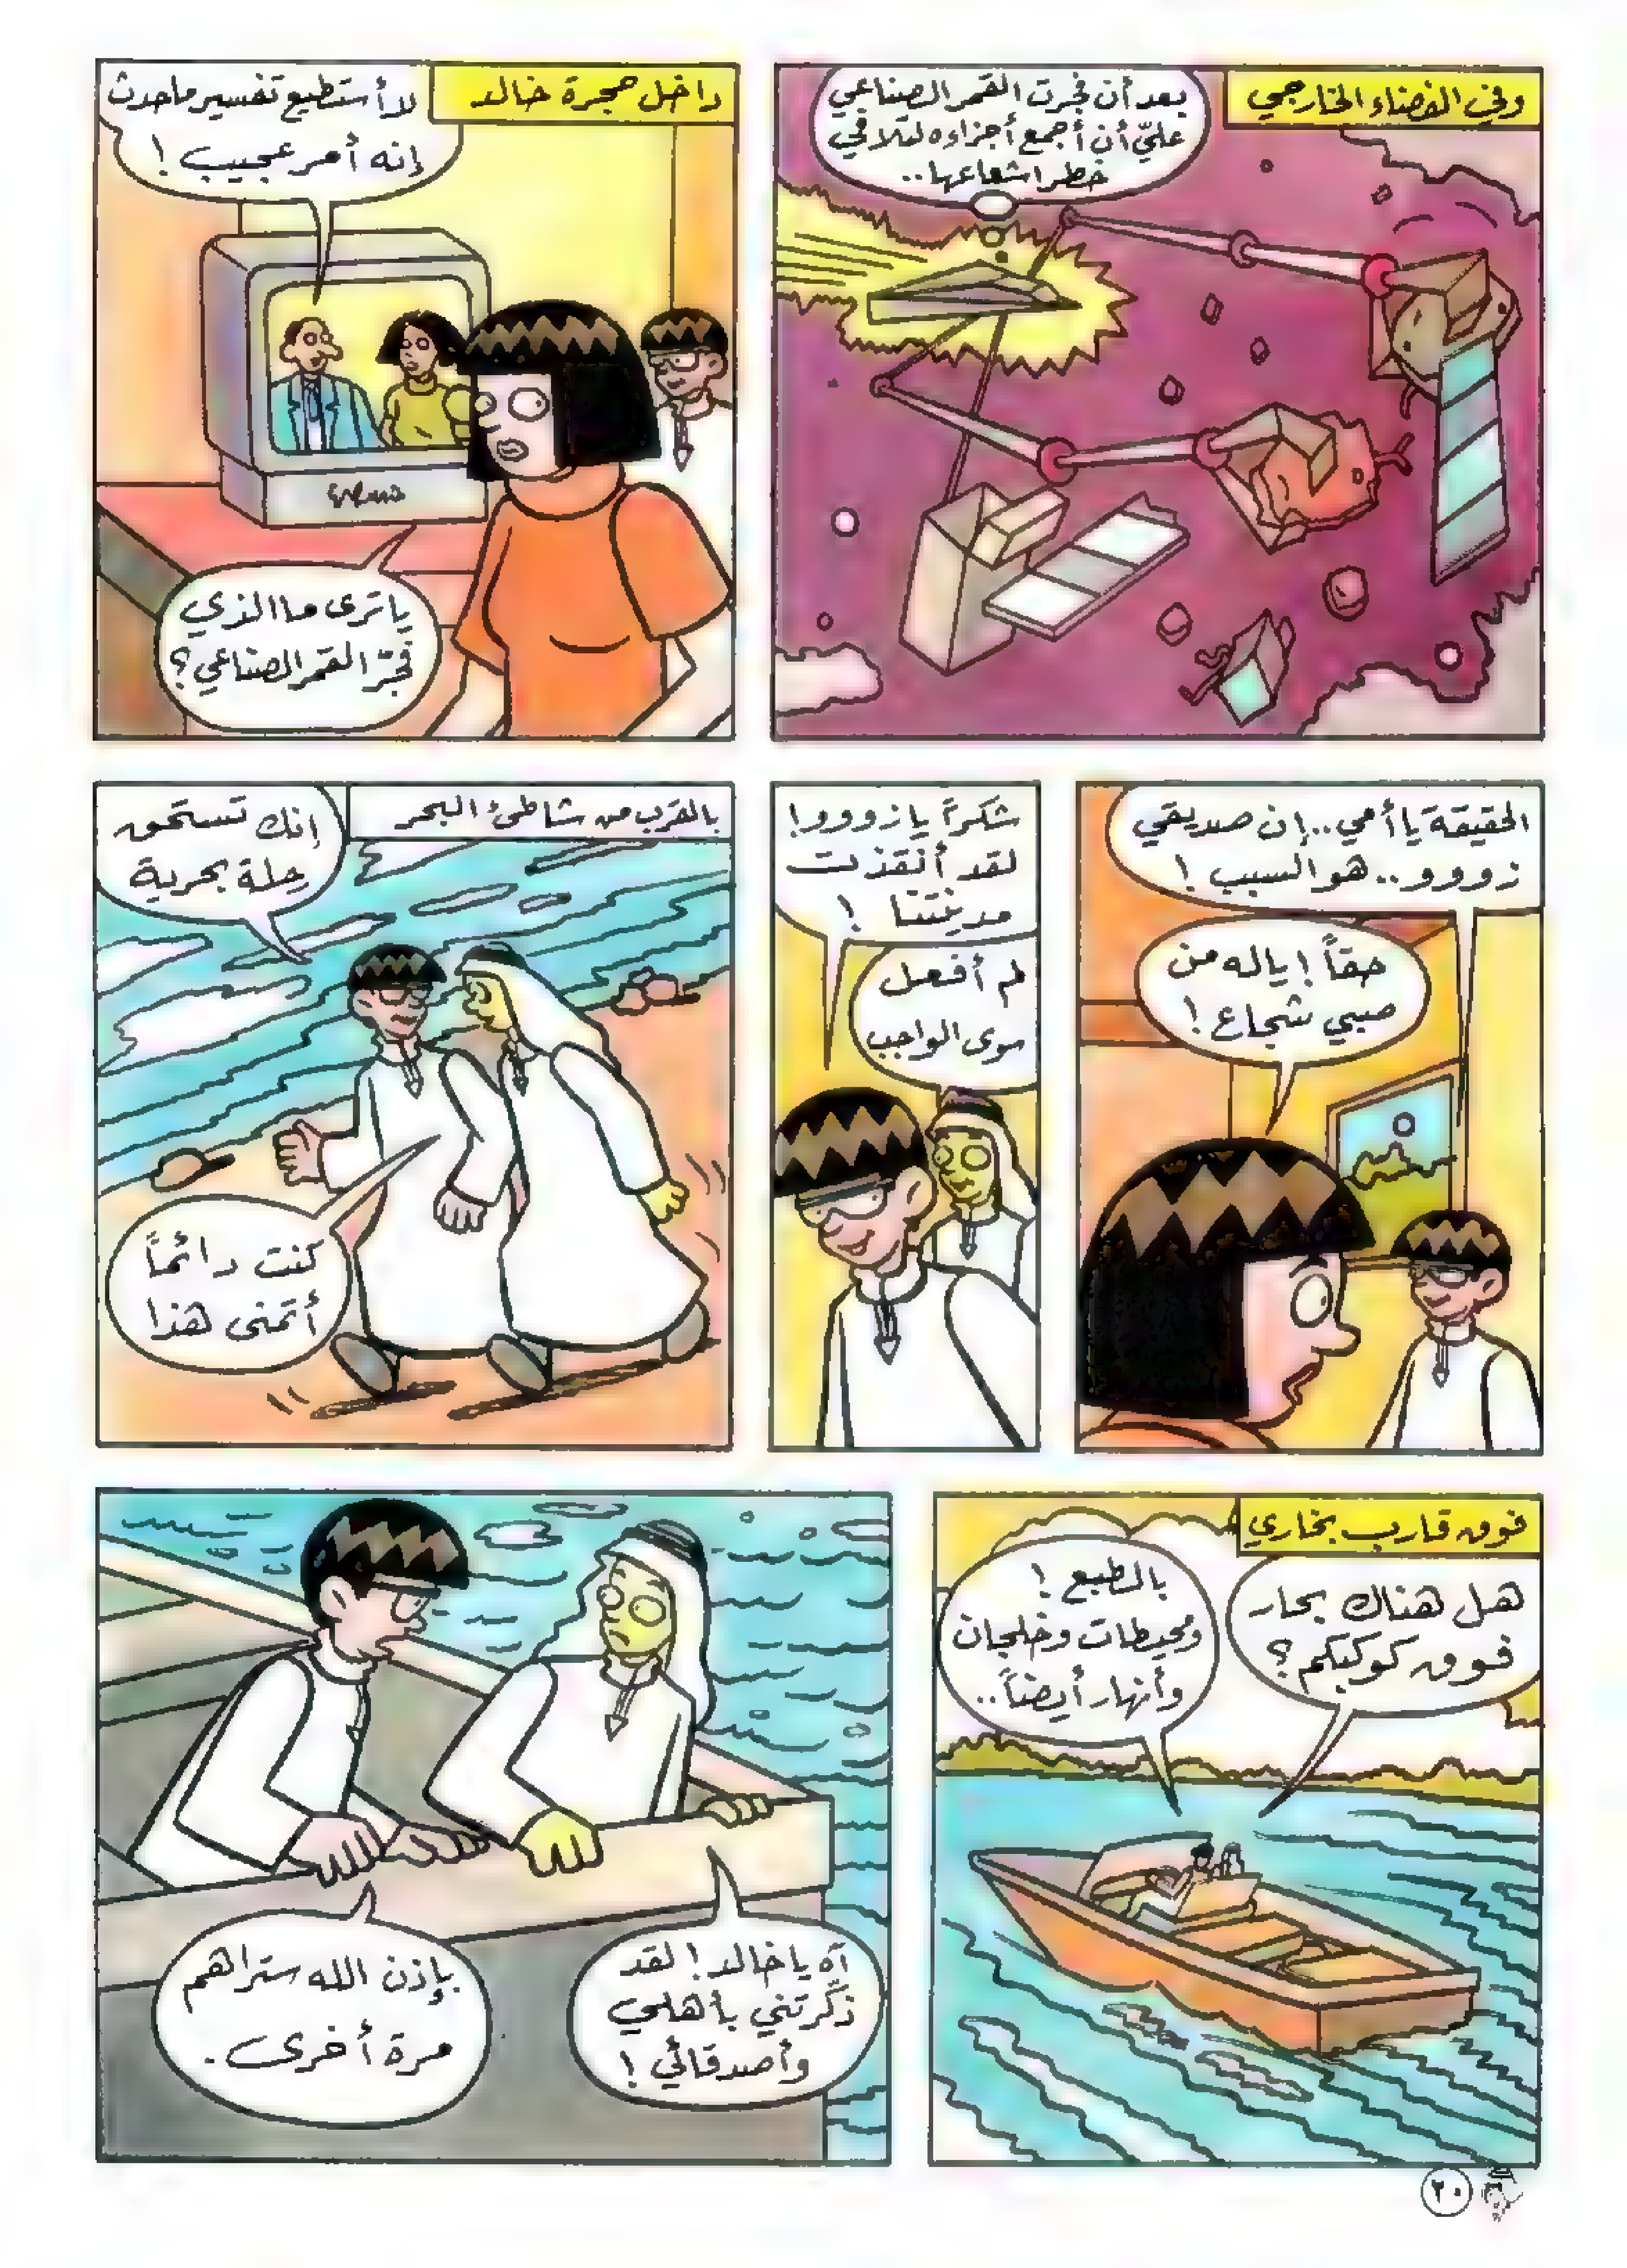 وفي الفضاء الخارجي
بعد أن فجرت القمر الصناعي
عليّ أن أجمع أجزاءه لتلافي
خطر اشعاعها..
داخل حجرة خالد
لا أستطيع تفسير ما حدث
إنه أمر عجيب !
يا ترى ما الذي
فجّر القمر الصناعي؟
الحقيقة يا أمي.. إن صديقي
زووو.. هو السبب !
حقاً ! ياله من
صبي شجاع !
شكراً يا زووو!
لقد أنقذت
مدينتنا !
لم أفعل
سوى الواجب
بالقرب من شاطئ البحر
إنك تستحق
رحلة بحرية
كنت دائماً
أتمنى هذا
فوق قارب بخاري
هل هناك بحار
فوق كوكبكم؟
بالطبع !
ومحيطات وخلجان
وأنهار أيضاً..
آه يا خالد! لقد
ذكّرتني بأهلي
وأصدقائي !
بإذن الله ستراهم
مرة أخرى.
٢٠